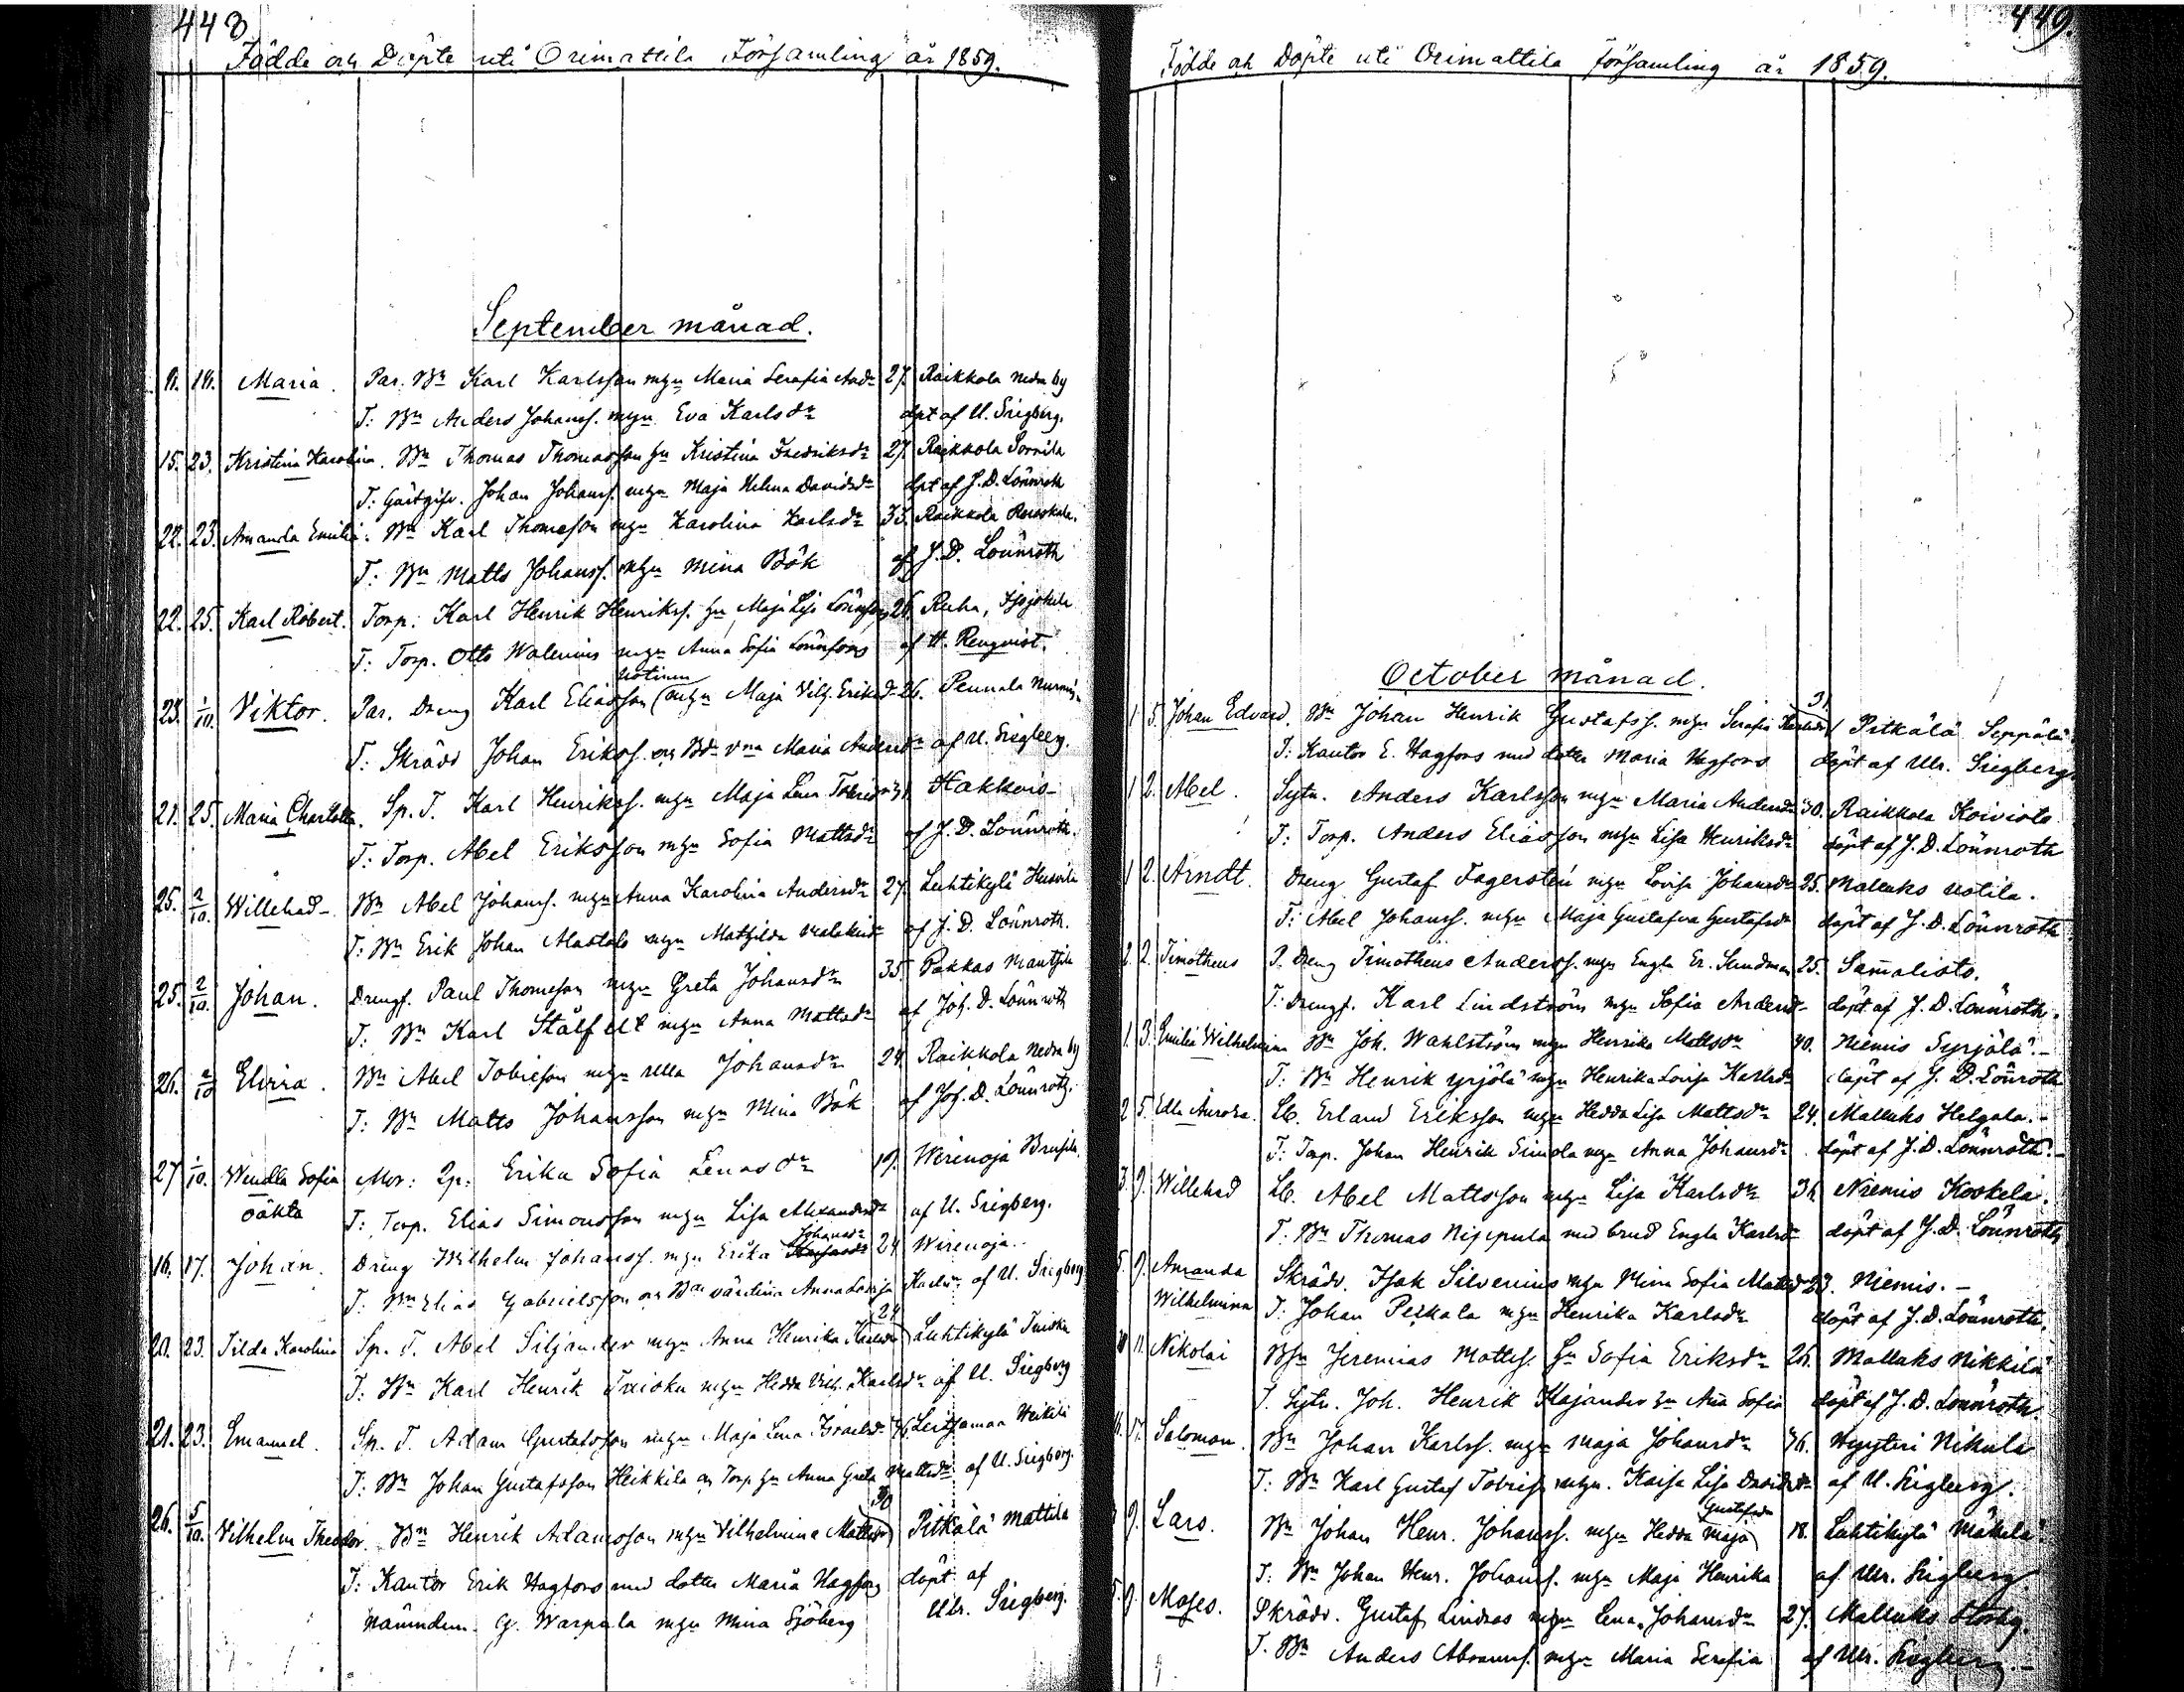 443
Födde och Döpte uti Orimattila Församling år 1859.
September månad.
11. 18. Maria. Par. Bn Karl Karlsson mhu Maria Serafia Andr 27. Raikkola Nedra by
T: Bn Anders Johanss. mhu Eva Karlsdr dpt af U. Siegberg.
15. 23. Kristina Karolina. Bn Thomas Thomasson hu Kristina Fredriksdr 27. Raikkola Sornila
T: Gästgifv. Johan Johanss. mhu Maja Helena Davidsdr dpt af J. D. Lönnroth
22. 23. Amanda Emilia. Bn Karl Thomeson mhu Karolina Karlsdr 33. Raikkola
T: Bn Matts Johanss. mhu Mina Bök af J. D. Lönnroth
22. 25. Karl Robert. Torp: Karl Henrik Henrikss. hu Maja Lisa Lönnfors 26. Ruha, Isojokila
T: Torp. Otto Walenius mhu Anna Sofia Lönnfors af H. Renqvist.
23. 1/10. Viktor. Par. Dreng Karl Eliasson mhu Maja Vilh. Eriksd 26. Pennala
T: Skrädd Johan Erikss. och Maria Andersdr af U. Siegberg.
21. 25. Maria Charlotta. Sp. T. Karl Henrikss. mhu Maja Lena 31. Hakkois
T: Torp. Abel Eriksson mhu Sofia Mattsdr af J. D. Lönnroth.
25. 2/10. Willehad Bn Abel Johanss. mhu Anna Karolina Andersdr 27. Luhtikylä
T: Bn Erik Johan mhu Mathilda af J. D. Lönnroth.
25. 2/10. Johan. Drengs. Paul Thomeson mhu Greta Johansdr 35. Pakkas Manttila
T: Bn Karl Stålfelt mhu Anna Mattsdr af Joh. D. Lönnroth
26. 2/10 Elvira. Bn Abel Tobieson mhu Ulla Johansdr 24. Raikkola Nedra by
T: Bn Matts Johansson mhu Mina Bök af Joh. D. Lönnroth.
27 1/10. Wendla Sofia Mor: Erika Sofia Lenasdr 19. Wirenoja
oäkta T: Torp. Elias Simonsson mhu Lisa Alexandersdr af U. Siegberg.
Johansdr
16. 17. Johan. Dreng Wilhelm Johanss. mhu Erika 24 Wirenoja
T: Bn Elias Gabrielsson och värdina Anna Lovisa af U. Siegberg
24
20. 23. Tilda Karolina Sp. T. Abel Siljander mhu Anna Henrika Karlsdr Luhtikylä
T: Bn Karl Henrik mhu Hedda Vilh. Karlsdr af U. Siegberg
21. 23. Emanuel. Sp. T. Adam Gustafsson mhu Maja Lena Israelsdr Leitsamaa Heikili
T: Bn Johan Gustafsson Heikkilä och Torp hu Anna Greta Mattsdr af U. Siegberg.
30
26. 5/10. Vilhelm Theodor. Bn Henrik Adamsson mhu Vilhelmina Mattsdr Pitkälä Mattila
T: Kantor Erik Hagfors med dotter Maria Hagfors döpt af
Nämndem. G. Warpula mhu Mina Sjöberg Ulr. Siegberg.
449.
Födde och Döpte uti Orimattila Församling år 1859.
October månad.
31
1 5. Johan Edvard. Bn Johan Henrik Gustafss. mhu Serafia Karlsdr Pitkälä Seppälä
T: Kantor E. Hagfors med dotter Maria Hagfors döpt af Ulr. Siegberg
1 2. Abel. Sytn. Anders Karlsson mhu Maria Andersdr 30. Raikkola Koivisto
T: Torp. Anders Eliasson mhu Lisa Henriksdr döpt af J. D. Lönnroth
1 2. Arndt. Dreng Gustaf Fagersten mhu Lovisa Johansdr 25. Mallusks Uotila.
T: Abel Johanss. mhu Maja Gustafva Gustafsdr döpt af J. D. Lönnroth
2. 2. Timotheus D. Dreng Timotheus Anderss. mhu Engla Er. Sundman 25. Sammalisto.
T: Drengs. Karl Lindström mhu Sofia Andersdr döpt af J. D. Lönnroth.
1. 3. Emilia Wilhelmina Bn Joh. Wahlström mhu Henrika Mattsdr 40. Niemis Syrjälä.
T: Bn Henrik Yrjölä mhu Henrika Lovisa Karlsdr döpt af J. D. Lönroth
2 5. Edla Aurora. Lb. Erland Eriksson mhu Hedda Lisa Mattsdr 24. Malluks Helgala.
T: Torp. Johan Henrik Simola mhu Anna Johansdr döpt af J. D. Lönnroth.
3. 9. Willehad Lb. Abel Mattsson mhu Lisa Karlsdr 36 Niemis Koskela.
T: Bn Thomas Nippula med brud Engla Karlsdr döpt af J. D. Lönnroth
5. 9. Amanda Skrädd. Isak Silvenius mhu Mina Sofia Mattsd 23. Niemis.
Wilhelmina T: Johan Peikala mhu Henrika Karlsdr döpt af J. D. Lönnroth.
10 11. Nikolai Bsn Jeremias Mattss. hu Sofia Eriksdr 26. Malluks Nikkilä
T. Sytn. Joh. Henrik Kajander hu Ana Sofia döpt af J. D. Lönnroth.
11. 17. Salomon. Bn Johan Karlss. mhu Maja Johansdr 36. Nikula
T: Bn Karl Gustaf Tobiess. mhu. Kaisa Lisa Davidsdr af U. Siegberg.
Gustafsdr
9. Lars. Bn Johan Henr. Johanss. mhu Hedda Maja 18. Luhtikylä Mäkelä
T: Bn Johan Henr. Johanss. mhu Maja Henrika af Ulr. Siegberg
5. 9. Moses. Skrädd. Gustaf Lindroos mhu Lena Johansdr 27. Malluks
T. Bn Anders Abramss. mhu Maria Serafia af Ulr. Siegberg.